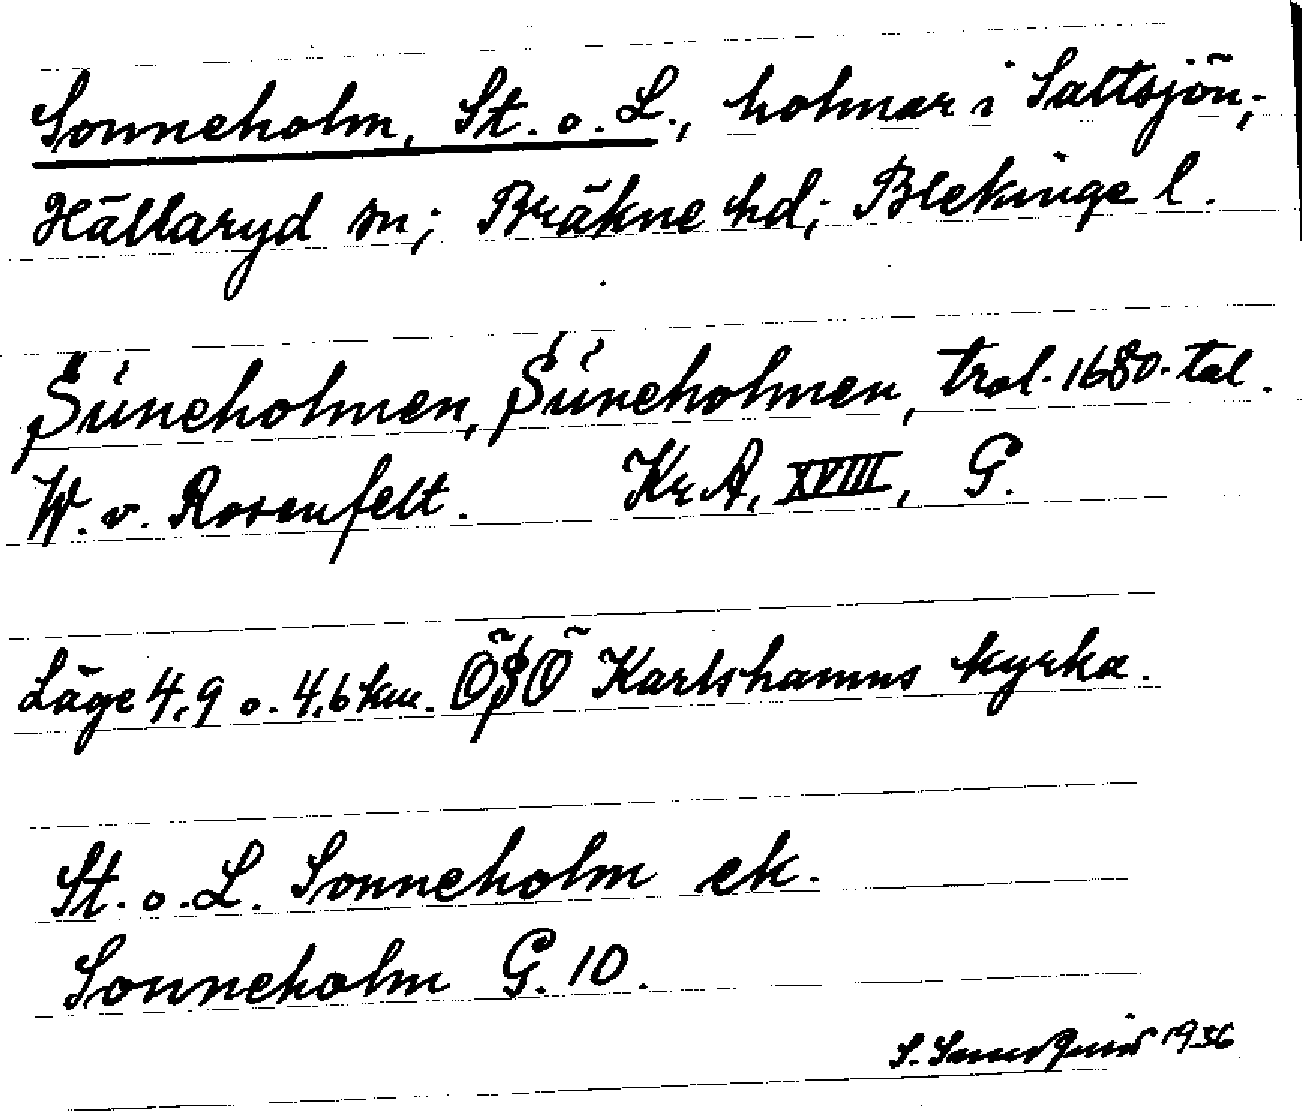 Sonneholm, St. o. L., holmar i Saltsjön;
Hällaryd sn; Bräkne hd; Blekinge l.
Süneholmen, Süneholmen, trol. 1680-tal.
W. v. Rosenfelt. Kr A, XVIII, G.
Läge 4,9 o. 4,6 km. ÖSÖ Karlshamns kyrka.
St. o. L. Sonneholm ek.
Sonneholm G. 10.
S. 1936